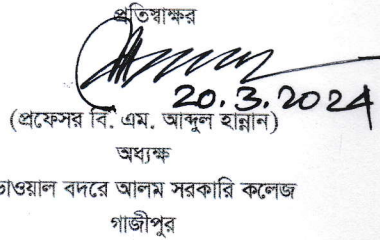 প্রতিস্বাক্ষর
20.3.2024
(প্রফেসর বি. এম. আব্দুল হান্নান)
অধ্যক্ষ
ভাওয়াল বদরে আলম সরকারি কলেজ
গাজীপুর